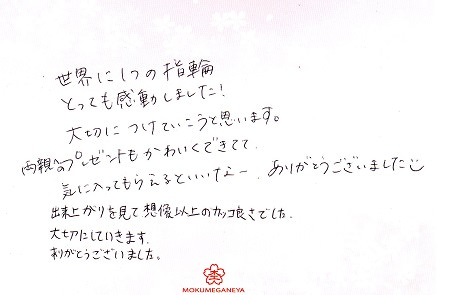 世界に1つの指輪
とっても感動しました!
大切につけていこうと思います。
両親へのプレゼントもかわいくできてて
気に入ってもらえるといいなー ありがとうございました
出来上がりを見て想像以上のカッコ良さでした.
大切にしていきます.
ありがとうございました。
MOKUMEGANEYA